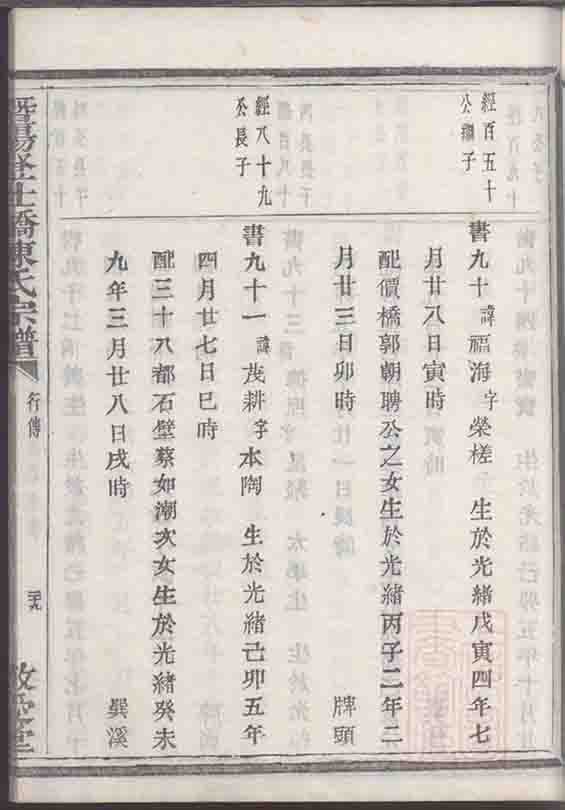 經百五十
公翔子
書九十 諱福海 字榮槎 生於光緒戊寅四年七
月廿八日寅時
配價橋郭朝聘公之女生於光緒丙子二年二
月廿三日卯時 牌頭
經八十九
丕長子
書九十一 諱茂耕 字本陶 生於光緒己卯五年
四月廿七日巳時
配三十八都石壁蔡如潮次女生於光緒癸未
九年三月廿八日戌時 巽溪
暨陽 橋陳氏宗譜
行傳